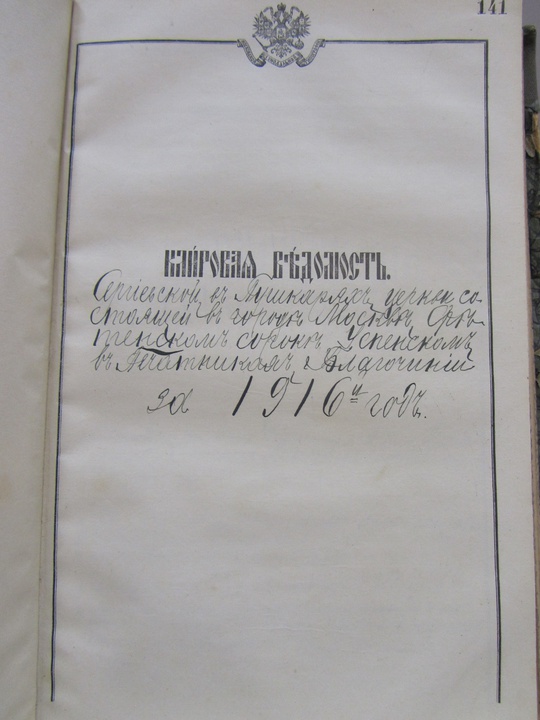 141
КЛИРОВАЯ ВѢДОМОСТЬ.
Сергіевской въ Пушкаряхъ церкви со-
стоящей въ городѣ Москвѣ, Срѣ-
тенскомъ сорокѣ, Успенскомъ
въ Печатникахъ, Благочиніи
за 1916й годъ.